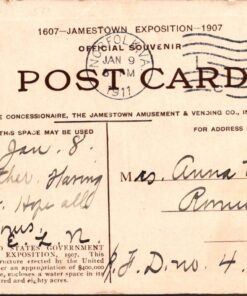 1607—JAMESTOWN EXPOSITION—1907
OFFICIAL SOUVENIR
NORFOLK, VA.
JAN 9
M
1911
POST CARD
E CONCESSIONAIRE, THE JAMESTOWN AMUSEMENT & VENDING CO., INC
THIS SPACE MAY BE USED
FOR ADDRESS
Jan. 8.
Having
Mrs. Anna
Hope all
E. L. R.
D STATES GOVERNMENT
EXPOSITION, 1907. This
tructure erected by the United
er an appropriation of $400,000
es, encloses a water space in its
red and eighty acres.
R.F.D. no. 4.